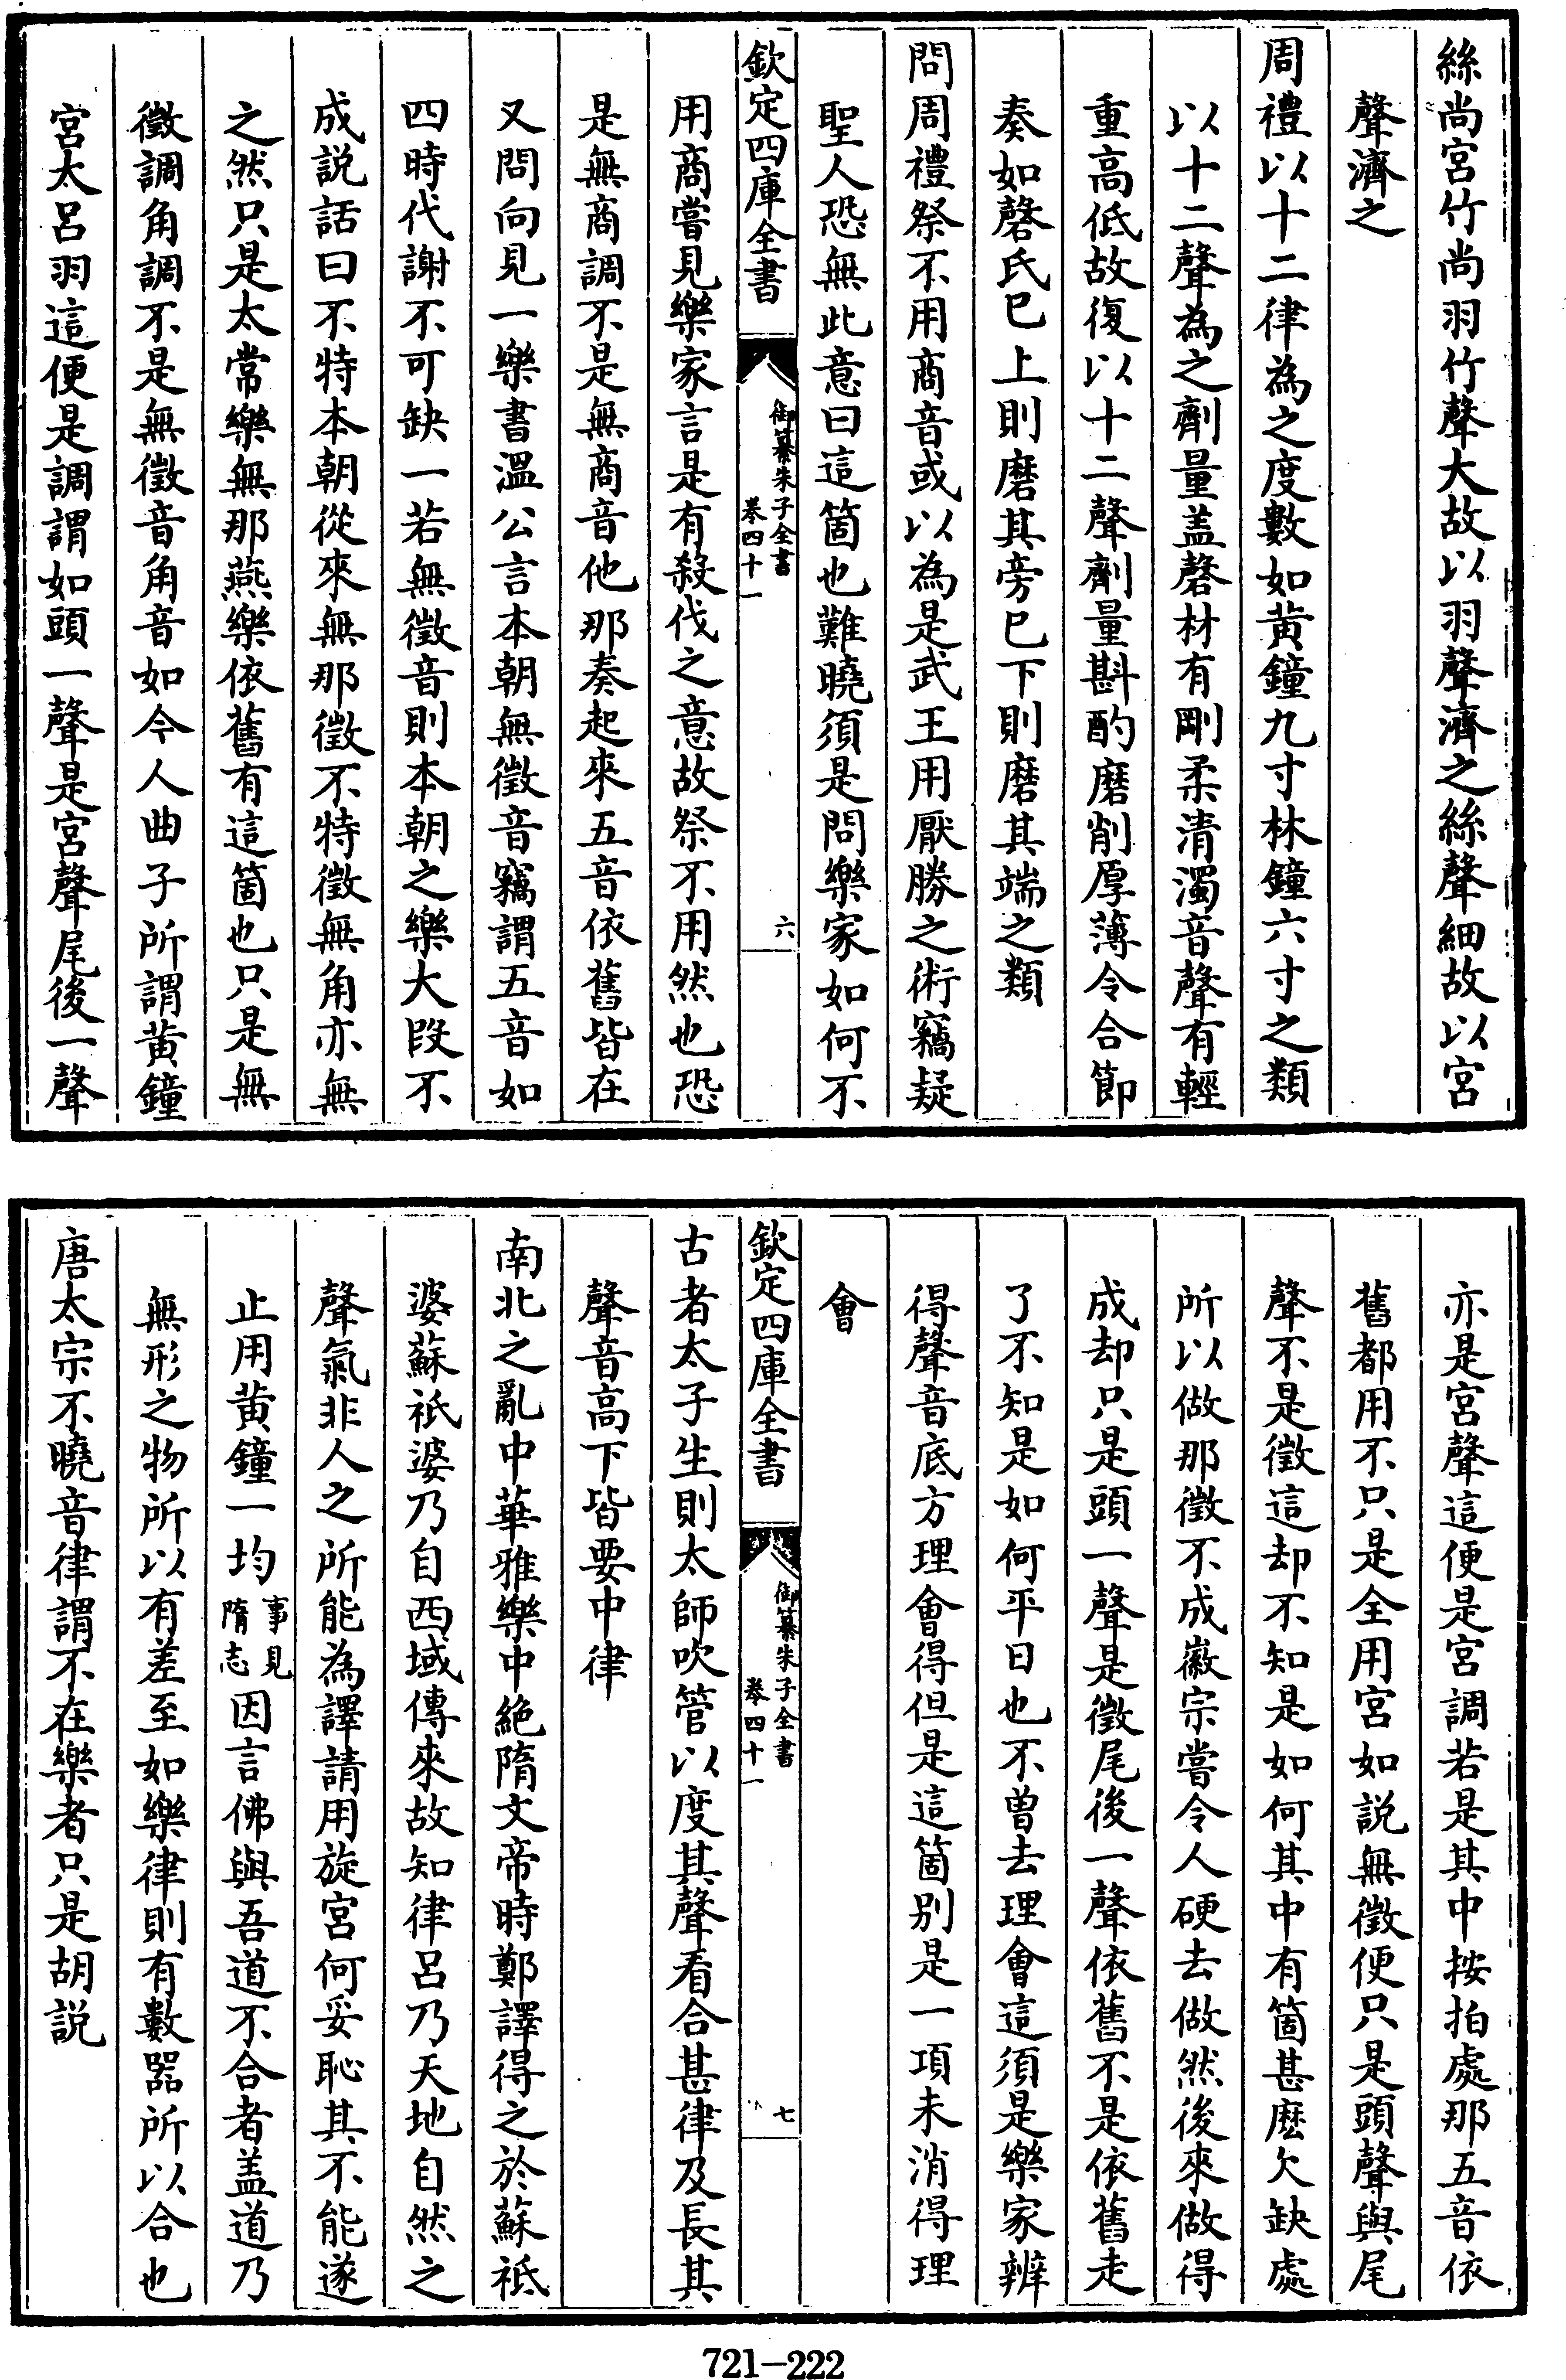 絲尚宮竹尚羽竹聲大故以羽聲濟之絲聲細故以宮
聲濟之
周禮以十二律為之度數如黃鐘九寸林鐘六寸之類
以十二聲為之劑量盖磬材有剛柔清濁音聲有輕
重高低故復以十二聲劑量斟酌磨削厚薄令合節
奏如磬氏已上則磨其旁已下則磨其端之類
問周禮祭不用商音或以為是武王用厭勝之術竊疑
聖人恐無此意曰這箇也難曉須是問樂家如何不
欽定四庫全書
御纂朱子全書
卷四十一
六
用商嘗見樂家言是有殺伐之意故祭不用然也恐
是無商調不是無商音他那奏起來五音依舊皆在
又問向見一樂書溫公言本朝無徵音竊謂五音如
四時代謝不可缺一若無徵音則本朝之樂大段不
成說話曰不特本朝從來無那徵不特徵無角亦無
之然只是太常樂無那燕樂依舊有這箇也只是無
徵調角調不是無徵音角音如今人曲子所謂黃鐘
宮太呂羽這便是調謂如頭一聲是宮聲尾後一聲
亦是宮聲這便是宮調若是其中按拍處那五音依
舊都用不只是全用宮如說無徵便只是頭聲與尾
聲不是徵這却不知是如何其中有箇甚麽欠缺處
所以做那徵不成徽宗嘗令人硬去做然後來做得
成却只是頭一聲是徵尾後一聲依舊不是依舊走
了不知是如何平日也不曾去理會這須是樂家辨
得聲音底方理會得但是這箇別是一項未消得理
會
欽定四庫全書
御纂朱子全書
卷四十一
七
古者太子生則太師吹管以度其聲看合甚律及長其
聲音高下皆要中律
南北之亂中華雅樂中絕隋文帝時鄭譯得之於蘇祗
婆蘇祇婆乃自西域傳來故知律呂乃天地自然之
聲氣非人之所能為譯請用旋宮何妥恥其不能遂
止用黃鐘一均事見隋志因言佛與吾道不合者盖道乃
無形之物所以有差至如樂律則有數器所以合也
唐太宗不曉音律謂不在樂者只是胡說
721-222